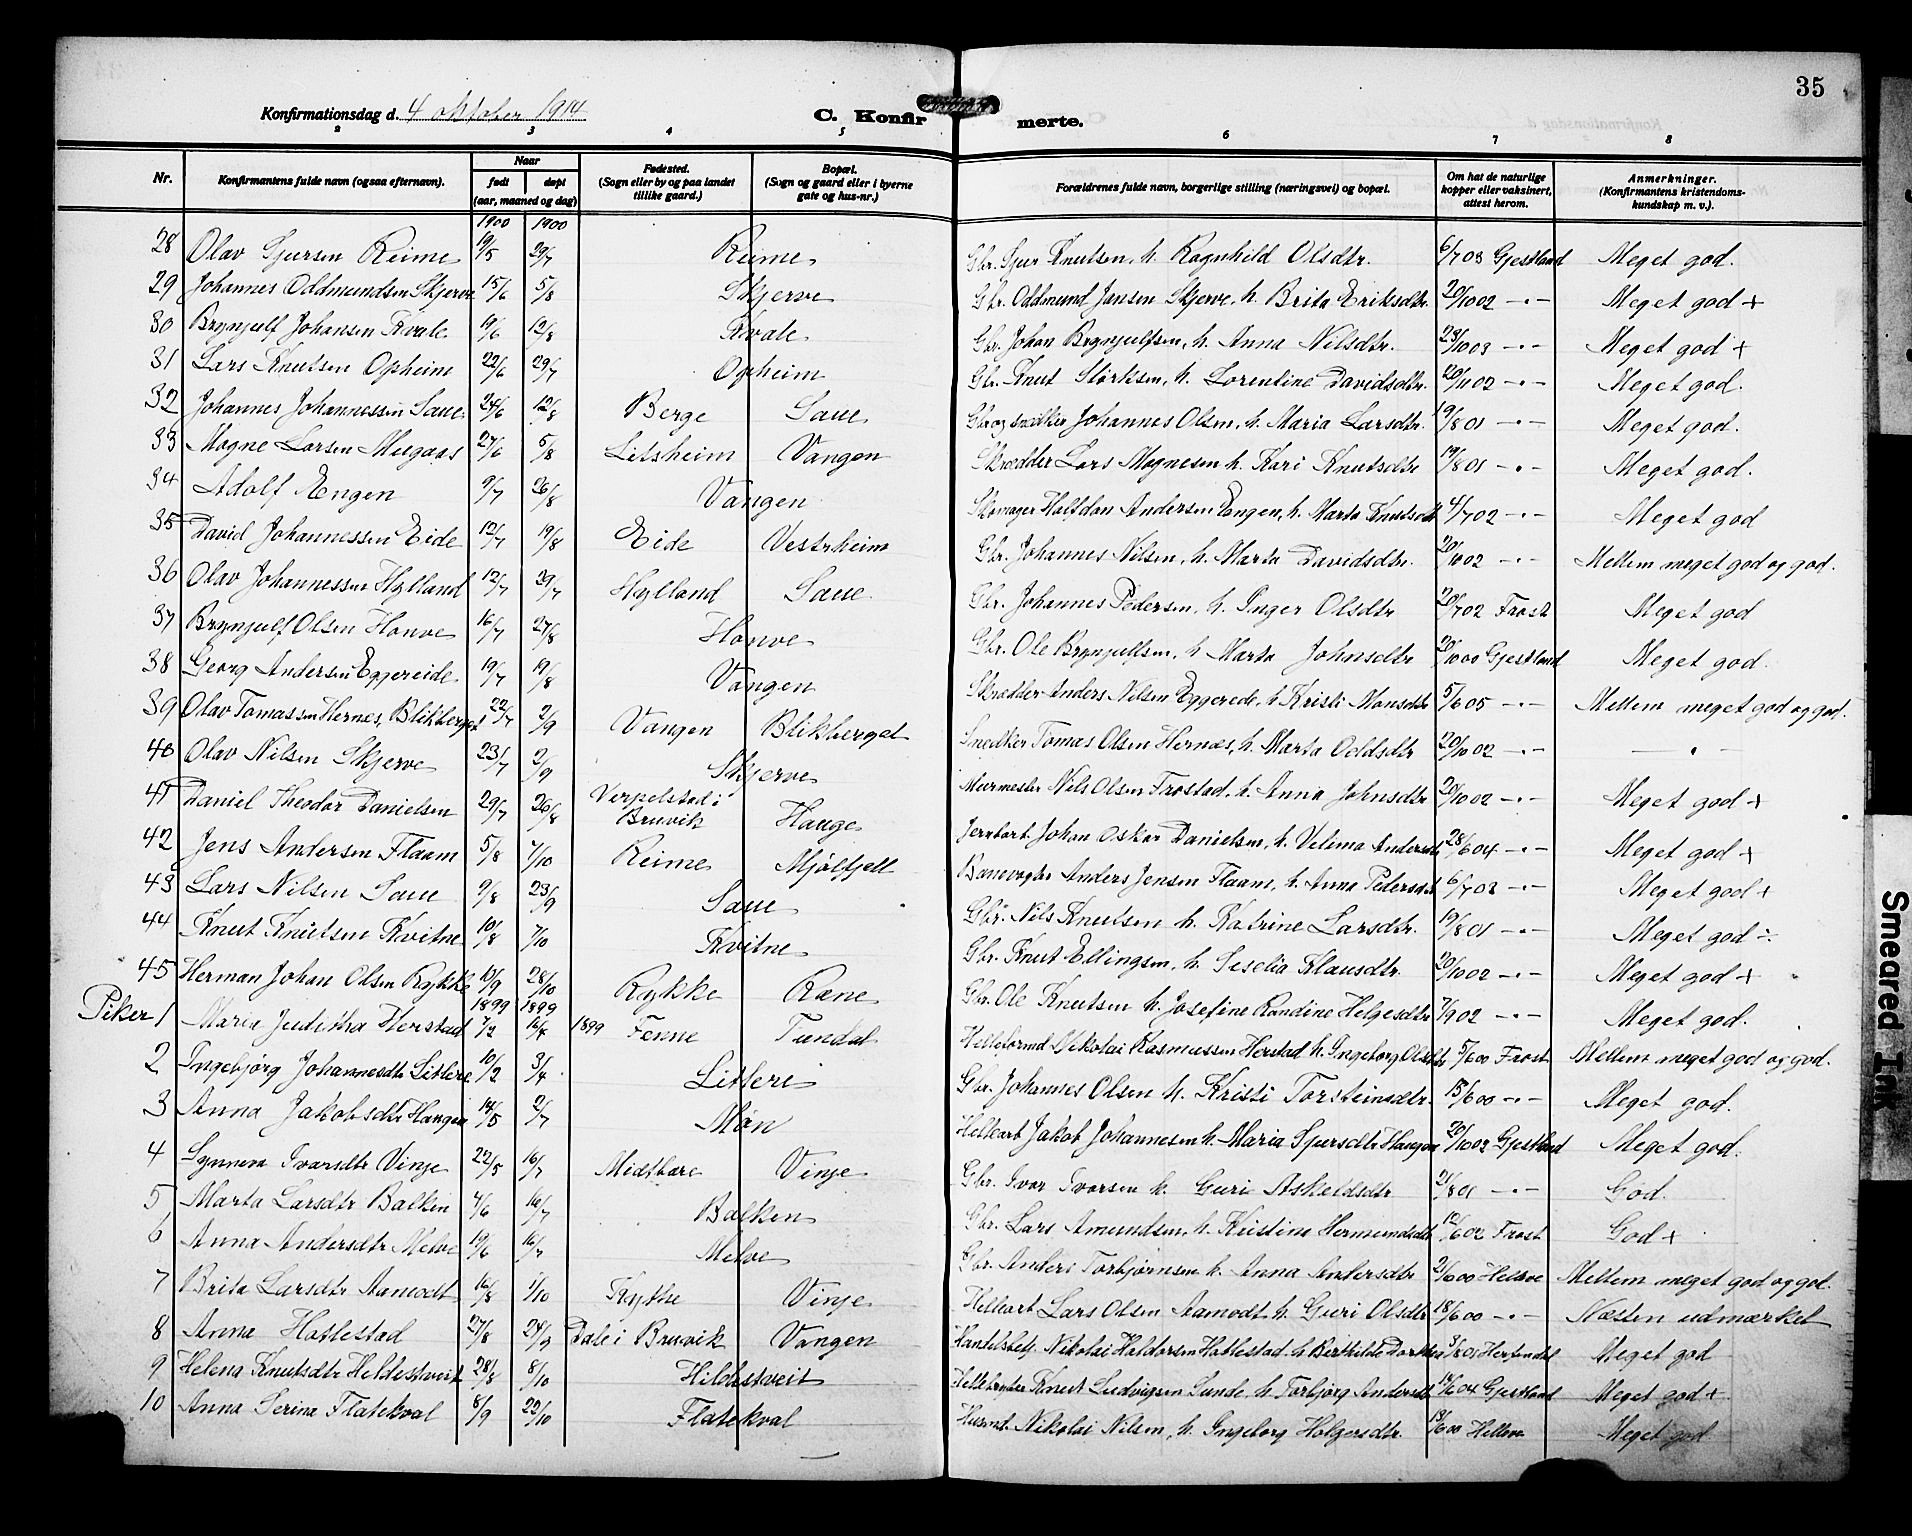 35
Konfirmationsdag d. 4 oktober 1914
C. Konfirmerte.
2 3 4 5 6 7 8
Nr. Konfirmantens fulde navn (ogsaa efternavn). Naar født døpt (aar, maaned og dag) Fødested. (Sogn eller by og paa landet tillike gaard.) Bopæl. (Sogn og gaard eller i byerne gate og hus-nr.) Forældrenes fulde navn, borgerlige stilling (næringsvei) og bopæl. Om hat de naturlige kopper eller vaksinert, attest herom. Anmerkninger. (Konfirmantens kristendoms-kundskap m. v.).
1900 1900
28 Olav Sjursen Reime 19/5 29/7 Reime Gbr. Sjur Knutsen, h. Ragnhild Olsdtr. 6/7 03 Gjestland Meget god.
29 Johannes Oddmundsen Skjerve 15/6 5/8 Skjerve Gbr. Oddmund Jansen Skjerve, h. Brita Eriksdtr. 20/10 02 -"- Meget god +
30 Brynjulf Johansen Kvale 19/6 12/8 Kvale Gbr. Johan Brynjulfsen, h. Anna Nilsdtr. 23/10 03 -"- Meget god +
31 Lars Knutsen Opheim 22/6 29/7 Opheim Gbr. Knut Størksen, h. Lorentine Davidsdtr. 20/11 02 -"- Meget god.
32 Johannes Johannessen Saue 24/6 12/8 Berge Saue Gbr og snedker Johannes Olsen, h. Maria Larsdtr. 19/8 01 -"- Meget god.
33 Magne Larsen Mugaas 27/6 5/8 Litsheim Vangen Skrædder Lars Magnesen h. Kari Knutsdtr 19/8 01 -"- Meget god.
34 Adolf Engen 9/7 26/8 Vangen Skomager Halfdan Andersen Engen, h. Marta Knutsdtr 4/7 02 -"- Meget god
35 David Johannessen Eide 12/7 19/8 Eide Vestrheim Gbr. Johannes Nilsen, h. Marta Davidsdtr. 20/10 02 -"- Mellem meget god og god.
36 Olav Johannessen Hylland 12/7 29/7 Hylland Saue Gbr. Johannes Pedersen, h. Inger Olsdtr 20/7 02 Frost Meget god
37 Brynjulf Olsen Honve 16/7 27/8 Honve Gbr. Ole Brynjulfsen, h. Marta Johnsdtr 20/10 00 Gjestland Meget god.
38 Georg Andersen Eggereide 19/7 19/8 Vangen Skrædder Anders Nilsen Eggerede, h. Kristi Monsdtr 5/6 05 -"- Mellem meget god og god.
39 Olav Tomassen Hernes, Blikberget 22/7 2/9 Vangen Blikberget Snedker Tomas Olsen Hernæs, h. Marta Oddsdtr 20/10 02 -"- - " -
40 Olav Nilsen Skjerve 23/7 2/9 Skjerve Murmester Nils Olsen Frostad, h. Anna Johnsdtr 20/10 02 -"- Meget god +
41 Daniel Theodor Danielsen 29/7 26/8 Verpelstad i Bruvik Hauge Jernbarb Johan Oskar Danielsen, h. Velima Andersdtr 28/6 04 -"- Meget god +
42 Jens Andersen Flaam 5/8 7/10 Reime Mjølfjell Banevogter Anders Jensen Flaam, h. Anna Pedersdtr 6/7 03 -"- Meget god +
43 Lars Nilsen Saue 9/8 23/9 Saue Gbr. Nils Knutsen h. Katrine Larsdtr. 19/8 01 -"- Meget god ÷
44 Knut Knutsen Kvitne 10/8 7/10 Kvitne Gbr. Knut Ellingsen, h. Seselia Klausdtr. 20/10 02 -"- Meget god +
45 Herman Johan Olsen Rykke 19/9 28/10 Rykke Rene Gbr. Ole Knutsen h. Josefine Randine Helgesdtr 7/9 02 -"- Meget god.
Piker 1899 1899
1 Maria Juditha Herstad 7/2 16/4 1899 Fenne Tundal Nikolai Rasmussen Herstad h. Ingeborg Olsdtr 5/6 00 Frost Mellem meget god og god.
2 Ingebjørg Johannesdtr Litlere 10/2 3/4 Litleri Gbr. Johannes Olsen h. Kristi Torsteinsdtr. 15/6 00 -"- Meget god.
3 Anna Jakobsdtr Haugen 14/5 2/7 Møn Jakob Johannesen h. Maria Sjursdtr Haugen 20/10 02 Gjestland Meget god.
4 Synneva Ivarsdtr Vinje 22/5 16/7 Midtbære Vinje Gbr. Ivar Ivarsen h. Guri Askeldsdtr 21/8 01 -"- God.
5 Marta Larsdtr Balken 4/6 16/7 Balken Gbr. Lars Amundsen, h. Kristina Hermundsdtr 12/6 02 Frost God +
6 Anna Andersdtr Melve 19/6 16/7 Melve Gbr. Anders Torbjørnsen h. Anna Andersdtr 21/6 00 Helleve Mellem meget god og god.
7 Brita Larsdtr Aamodt 16/8 1/10 Kythe Vinje Lars Olsen Aamodt h. Guri Olsdtr 18/6 00 -"- Næsten udmærket
8 Anna Hatlestad 27/8 24/9 Dale i Bruvik Vangen Handelsbetj. Nikolai Haldorsen Hatlestad h. Berthilde Dorthea 3/8 01 Herfindal Meget god
9 Helena Knutsdtr Heldestveit 28/8 8/10 Hildestveit Knut Ludvigsen Sunde, h. Torbjørg Andersdtr 14/6 04 Gjestland Meget god +
10 Anna Serina Flatekval 8/9 22/10 Flatekval Husmd. Nikolai Nilsen, h. Ingeborg Holgersdtr. 13/6 00 Helleve Meget god
Smeared Ink